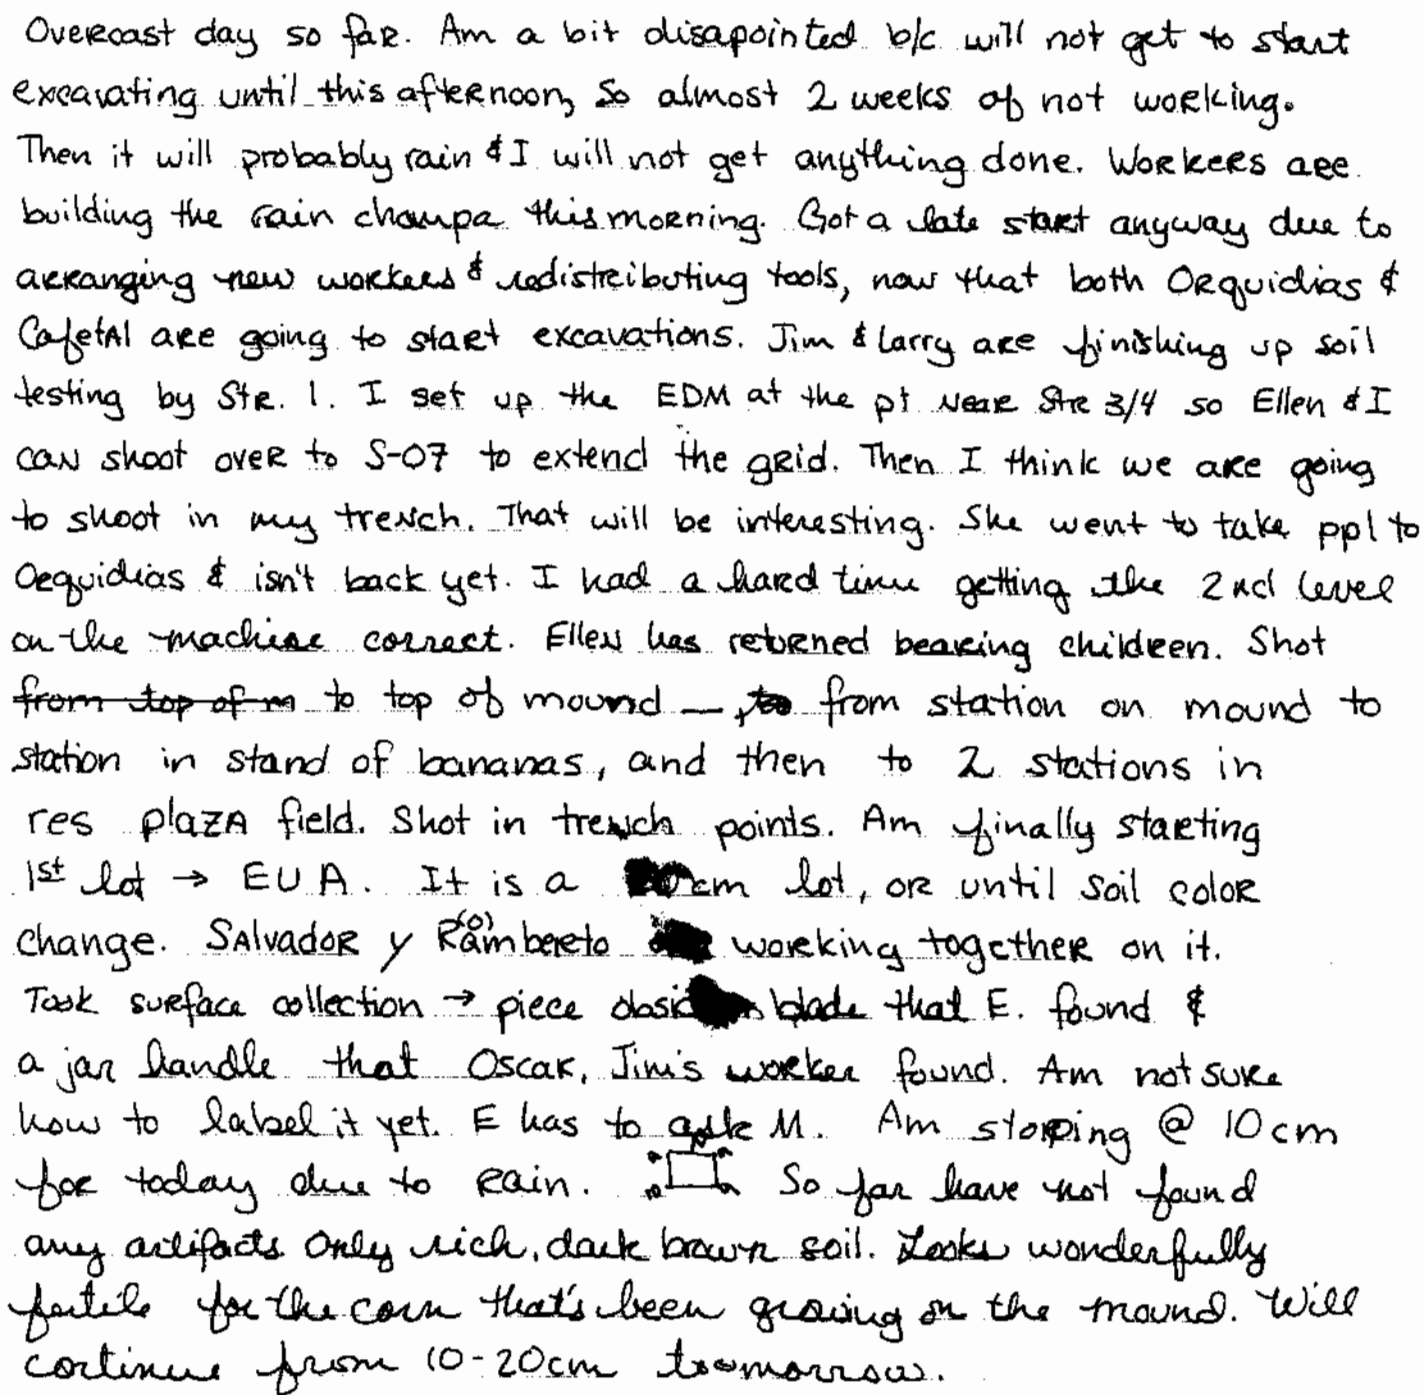 Overcast day so far. Am a bit disapointed b/c will not get to start
excavating until this afternoon, So almost 2 weeks of not working.
Then it will probably rain & I will not get anything done. Workers are
building the rain champa this morning. Got a late start anyway due to
arranging new workers & redistributing tools, now that both Orquidias &
Cafetal are going to start excavations. Jim & Larry are finishing up soil
testing by Str. 1. I set up the EDM at the pt near Str 3/4 so Ellen & I
can shoot over to S-07 to extend the grid. Then I think we are going
to shoot in my trench. That will be interesting. She went to take ppl to
Orquidias & isn't back yet. I had a hard time getting the 2nd level
on the machine correct. Ellen has returned bearing children. Shot
from top of m to top of mound — to from station on mound to
station in stand of bananas, and then to 2 stations in
res plaza field. Shot in trench points. Am finally starting
1st lot → EU A. It is a cm lot, or until soil color
change. Salvador y Rambereto (o) working together on it.
Took surface collection → piece blade that E. found &
a jar handle that Oscar, Jim's worker found. Am not sure
how to label it yet. E has to ask M. Am stopping @ 10cm
for today due to rain. So far have not found
any artifacts Only rich, dark brown soil. Looks wonderfully
fertile for the corn that's been growing on the mound. Will
continue from 10-20cm toomorrow.